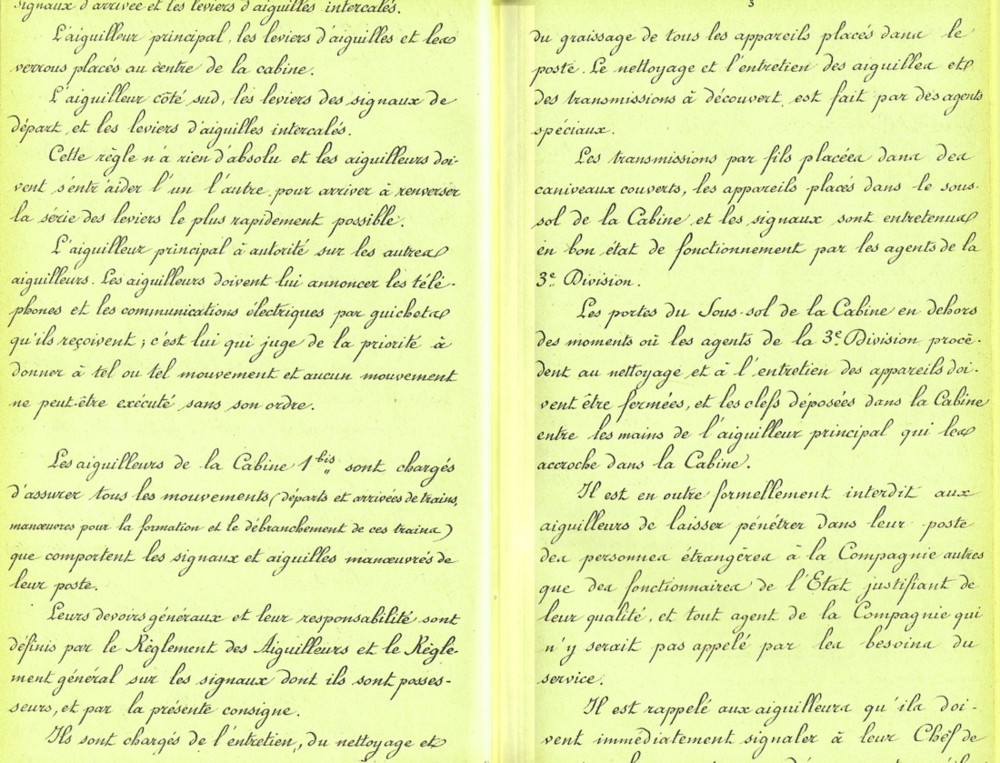 signaux d'arrivée et les leviers d'aiguilles intercalés.
L'aiguilleur principal, les leviers d'aiguilles et les
verrous placés au centre de la cabine.
L'aiguilleur côté sud, les leviers des signaux de
départ, et les leviers d'aiguilles intercalés.
Cette règle n'a rien d'absolu et les aiguilleurs doi-
vent s'entr'aider l'un l'autre pour arriver à renverser
la série des leviers le plus rapidement possible.
L'aiguilleur principal à autorité sur les autres
aiguilleurs. Les aiguilleurs doivent lui annoncer les télé-
phones et les communications électriques par guichets
qu'ils reçoivent ; c'est lui qui juge de la priorité à
donner à tel ou tel mouvement et aucun mouvement
ne peut-être exécuté sans son ordre.
Les aiguilleurs de la Cabine 1 bis sont chargés
d'assurer tous les mouvements (départs et arrivées de trains,
manœuvres pour la formation et le débranchement de ces trains)
que comportent les signaux et aiguilles manœuvrés de
leur poste.
Leurs devoirs généraux et leur responsabilité sont
définis par le Règlement des Aiguilleurs et le Règle-
ment général sur les signaux dont ils sont posses-
seurs, et par la présente consigne.
Ils sont chargés de l'entretien, du nettoyage et
3
du graissage de tous les appareils placés dans le
poste. Le nettoyage et l'entretien des aiguilles et
des transmissions à découvert est fait par des agents
spéciaux.
Les transmissions par fils placées dans des
caniveaux couverts, les appareils placés dans le sous-
sol de la Cabine et les signaux sont entretenus
en bon état de fonctionnement par les agents de la
3e Division.
Les portes du Sous-sol de la Cabine en dehors
des moments où les agents de la 3e Division procè-
dent au nettoyage et à l'entretien des appareils doi-
vent être fermées, et les clefs déposées dans la Cabine
entre les mains de l'aiguilleur principal qui les
accroche dans la Cabine.
Il est en outre formellement interdit aux
aiguilleurs de laisser pénétrer dans leur poste
des personnes étrangères à la Compagnie autres
que des fonctionnaires de l'Etat justifiant de
leur qualité, et tout agent de la Compagnie qui
n'y serait pas appelé par les besoins du
service.
Il est rappelé aux aiguilleurs qu'ils doi-
vent immédiatement signaler à leur Chef de